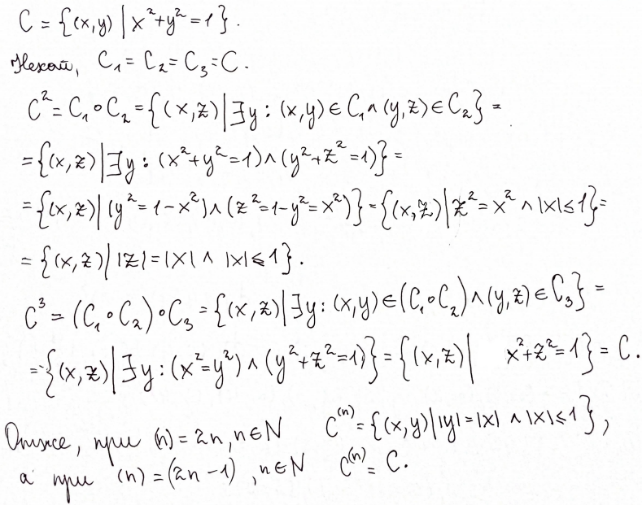 C = {(x,y) | x²+y²=1}.
Нехай, C₁ = C₂ = C₃ = C.
C² = C₁∘C₂ = {(x,z) | ∃y : (x,y) ∈ C₁ ∧ (y,z) ∈ C₂} =
= {(x,z) | ∃y : (x²+y²=1) ∧ (y²+z²=1)} =
= {(x,z) | (y²=1-x²) ∧ (z²=1-y²=x²)} = {(x,z) | z²=x² ∧ |x|≤1} =
= {(x,z) | |z|=|x| ∧ |x|≤1}.
C³ = (C₁∘C₂)∘C₃ = {(x,z) | ∃y : (x,y) ∈ (C₁∘C₂) ∧ (y,z) ∈ C₃} =
= {(x,z) | ∃y : (x²=y²) ∧ (y²+z²=1)} = {(x,z) | x²+z²=1} = C.
Отже, при (n) = 2n, n∈N C⁽ⁿ⁾ = {(x,y) | |y|=|x| ∧ |x|≤1},
а при (n) = (2n-1), n∈N C⁽ⁿ⁾ = C.